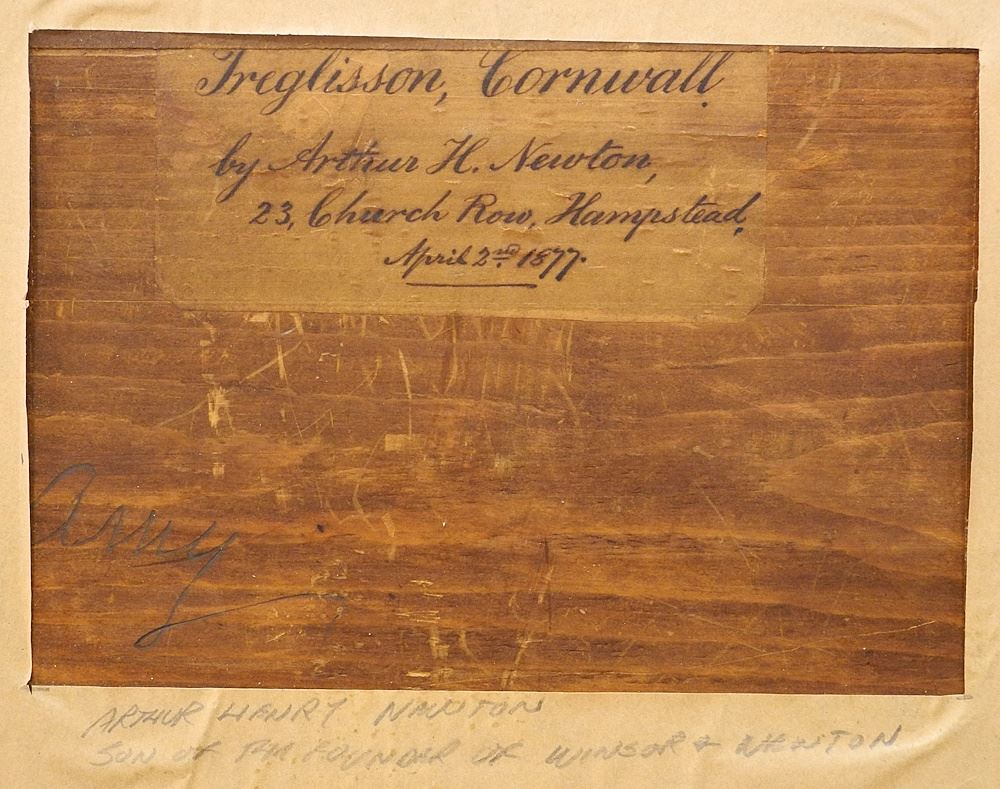 Treglisson, Cornwall.
by Arthur H. Newton,
23, Church Row, Hampstead,
April 2nd 1877.
Amy
ARTHUR HENRY NEWTON
SON OF THE FOUNDER OF WINSOR & NEWTON